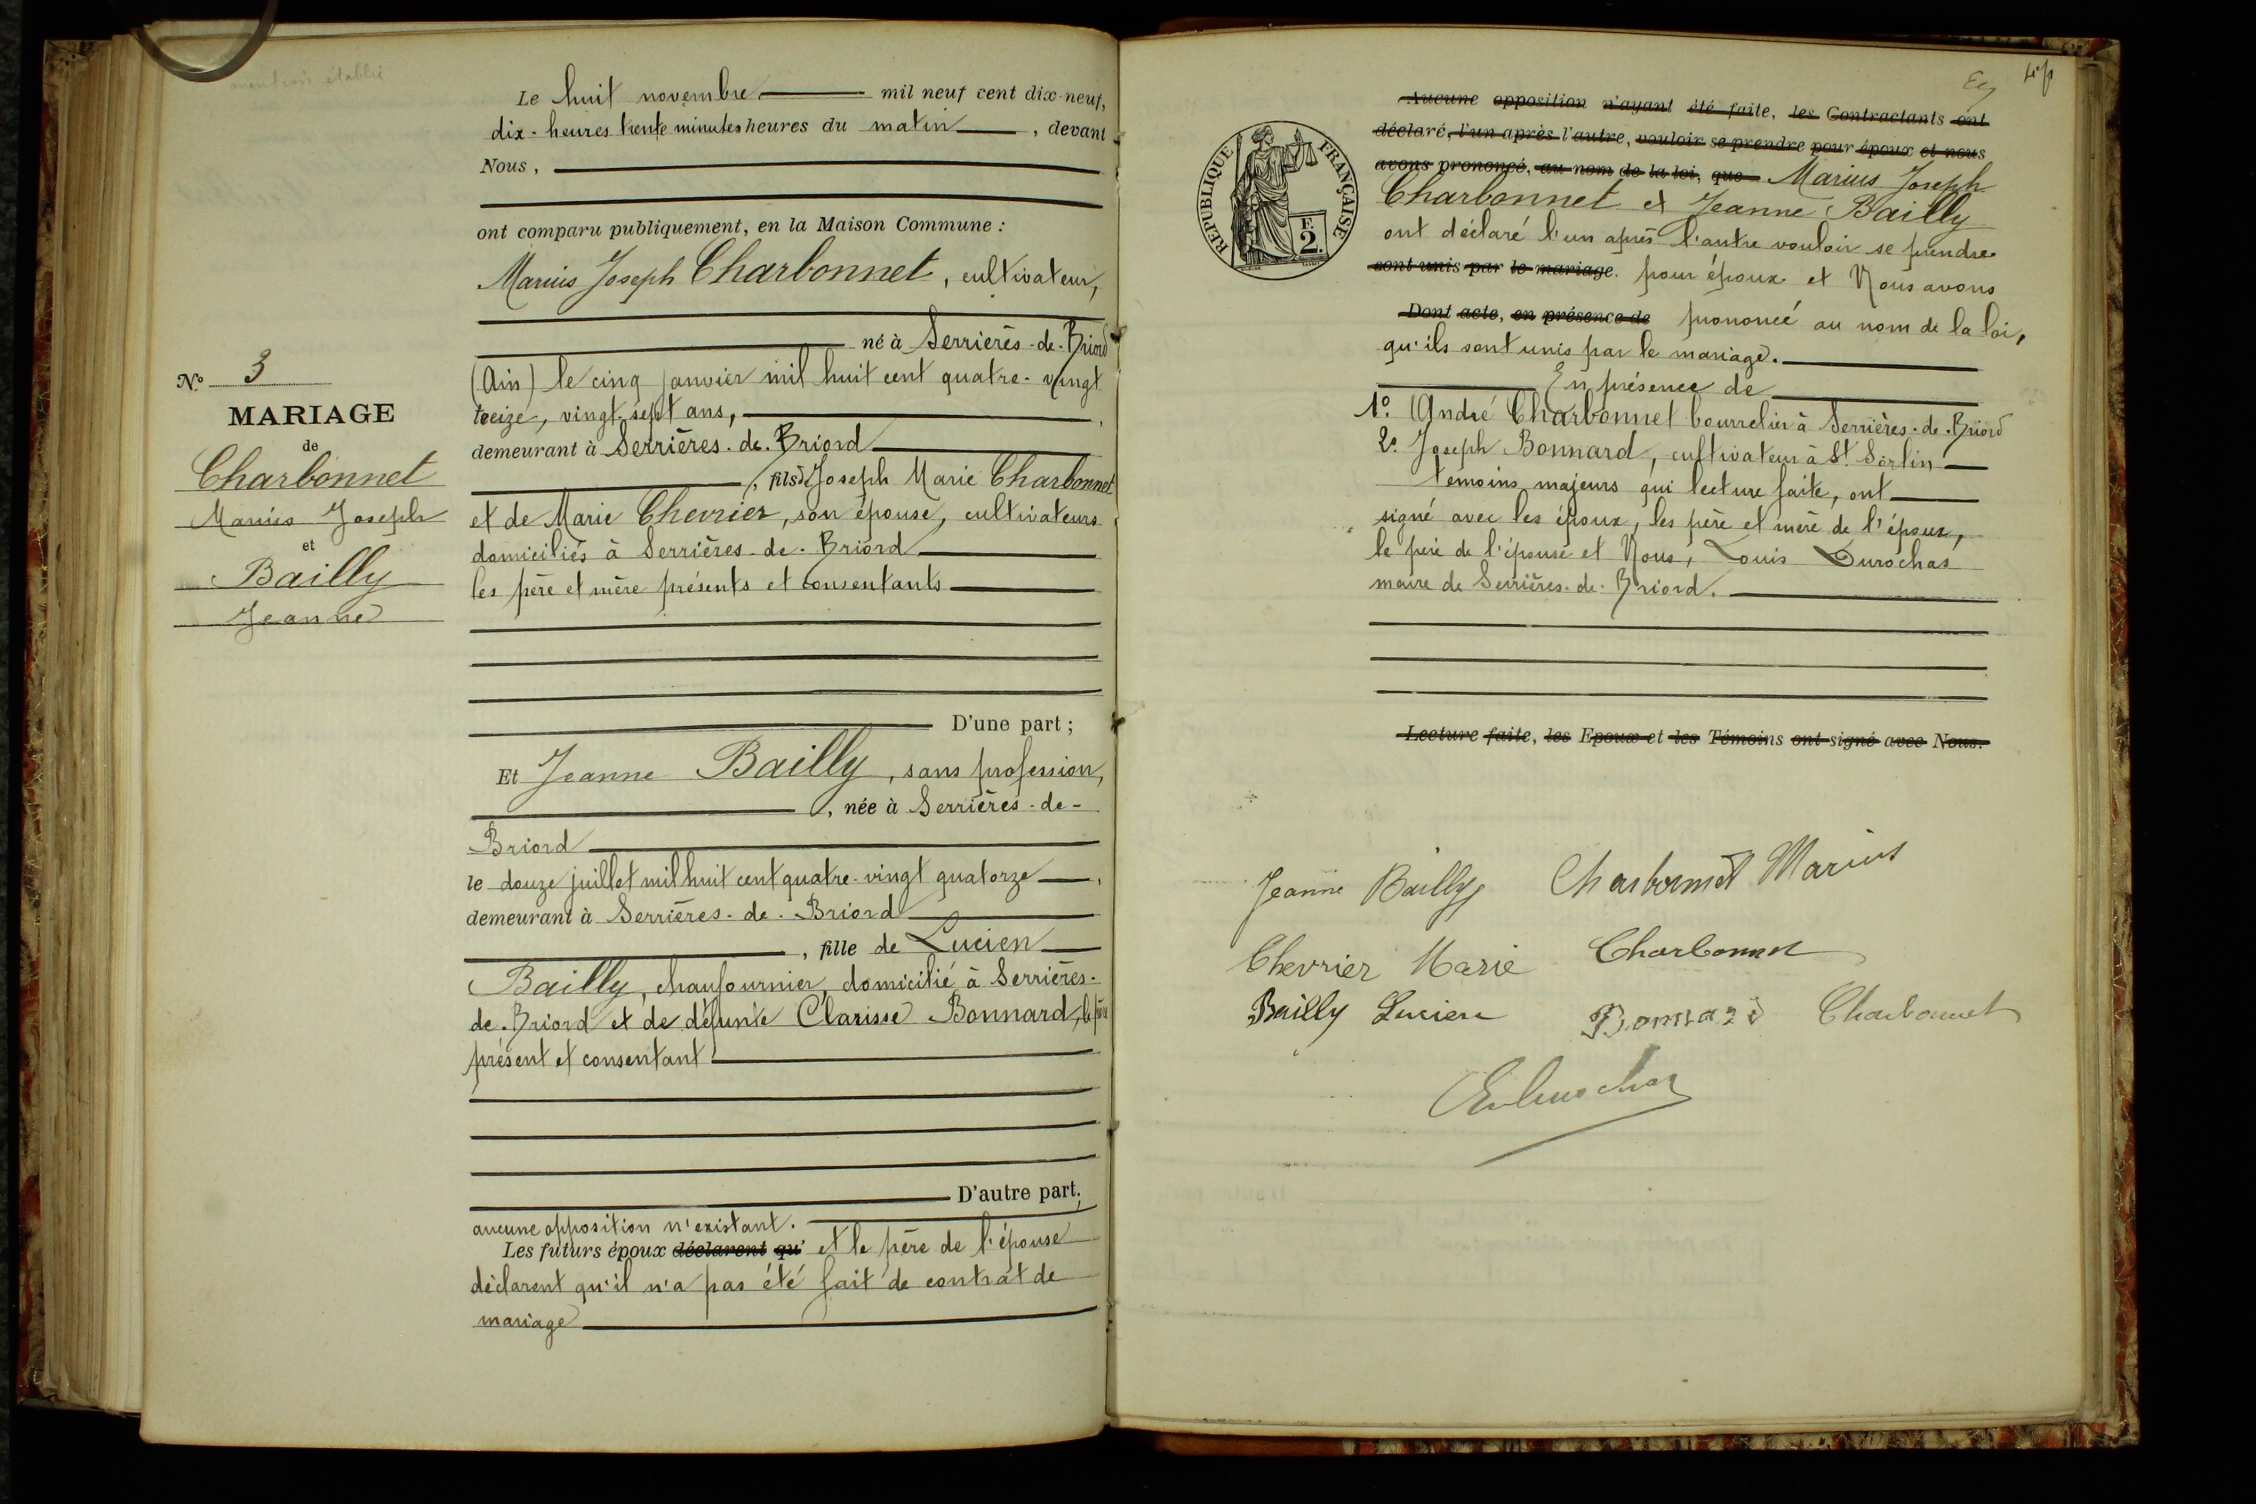 mention établie
Le huit novembre mil neuf cent dix-neuf,
dix-heures trente minutes heures du matin, devant
Nous,
ont comparu publiquement, en la Maison Commune :
Marius Joseph Charbonnet, cultivateur,
né à Serrières-de-Briord
(Ain) le cinq janvier mil huit cent quatre-vingt
treize, vingt-sept ans,
demeurant à Serrières-de-Briord
, fils de Joseph Marie Charbonnet
et de Marie Chevrier, son épouse, cultivateurs
domiciliés à Serrières-de-Briord
les père et mère présents et consentants
D'une part ;
Et Jeanne Bailly, sans profession,
, née à Serrières-de-
Briord
le douze juillet mil huit cent quatre-vingt quatorze,
demeurant à Serrières-de-Briord
, fille de Lucien
Bailly, chaufournier, domicilié à Serrières-
de-Briord et de défunte Clarisse Bonnard, le père
présent et consentant
D'autre part;
aucune opposition n'existant.
Les futurs époux déclarent qu' et le père de l'épouse
déclarent qu'il n'a pas été fait de contrat de
mariage
No 3
MARIAGE
de
Charbonnet
Marius Joseph
et
Bailly
Jeanne
REPUBLIQUE FRANÇAISE
F.
2.
Aucune opposition n'ayant été faite, les Contractants ont
déclaré, l'un après l'autre, vouloir se prendre pour époux et nous
avons prononcé, au nom de la loi, que Marius Joseph
Charbonnet et Jeanne Bailly
ont déclaré l'un après l'autre vouloir se prendre
sont unis par le mariage. pour époux et Nous avons
Dont acte, en présence de prononcé au nom de la loi,
qu'ils sont unis par le mariage.
En présence de
1o. André Charbonnet bourrelier à Serrières-de-Briord
2o. Joseph Bonnard, cultivateur à St Sorlin
témoins majeurs qui lecture faite, ont
signé avec les époux, les père et mère de l'époux,
le père de l'épouse et Nous, Louis Durochas
maire de Serrières-de-Briord.
Lecture faite, les Epoux et les Témoins ont signé avec Nous.
Jeanne Bailly Charbonnet Marius
Chevrier Marie Charbonnet
Bailly Lucien Bonnard Charbonnet